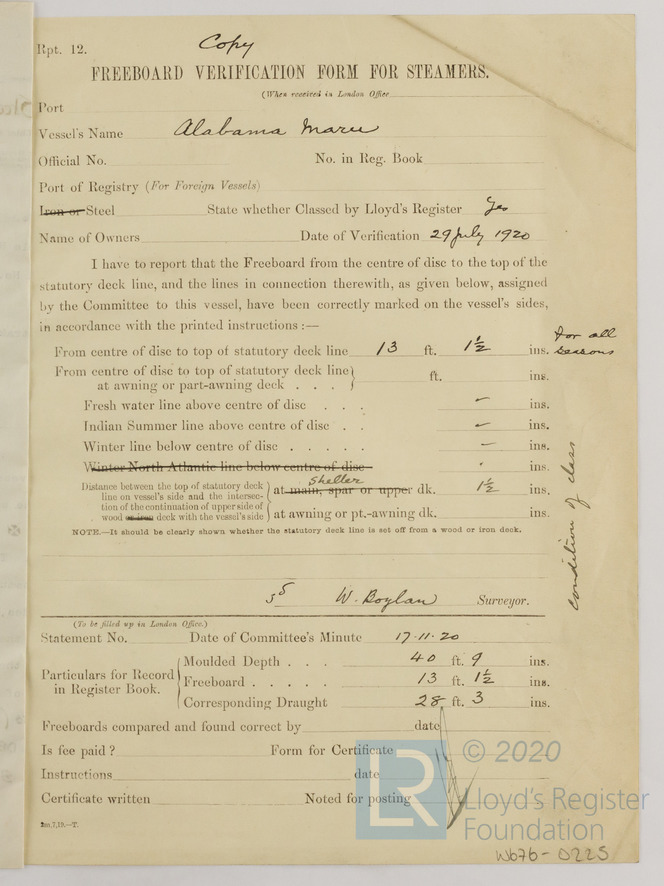 Rpt. 12.
Copy
FREEBOARD VERIFICATION FORM FOR STEAMERS.
(When received in London Office
Port
Vessel's Name Alabama Maru
Official No. No. in Reg. Book
Port of Registry (For Foreign Vessels)
Iron or Steel State whether Classed by Lloyd's Register Yes
Name of Owners Date of Verification 29 July 1920
I have to report that the Freeboard from the centre of disc to the top of the
statutory deck line, and the lines in connection therewith, as given below, assigned
by the Committee to this vessel, have been correctly marked on the vessel's sides,
in accordance with the printed instructions :—
From centre of disc to top of statutory deck line 13 ft. 1½ ins. for all seasons
From centre of disc to top of statutory deck line
at awning or part-awning deck . . . ft. ins.
Fresh water line above centre of disc . . . – ins.
Indian Summer line above centre of disc . . – ins.
Winter line below centre of disc . . . . . – ins.
Winter North Atlantic line below centre of disc ins.
Distance between the top of statutory deck
line on vessel's side and the intersec-
tion of the continuation of upper side of
wood or iron deck with the vessel's side
shelter
at main, spar or upper dk. 1½ ins.
at awning or pt.-awning dk. ins.
NOTE.—It should be clearly shown whether the statutory deck line is set off from a wood or iron deck.
condition of class
W. Boylan Surveyor.
(To be filled up in London Office.)
Statement No. Date of Committee's Minute 17.11.20
Particulars for Record
in Register Book.
Moulded Depth . . . 40 ft. 9 ins.
Freeboard . . . . . 13 ft. 1½ ins.
Corresponding Draught 28 ft. 3 ins.
Freeboards compared and found correct by date
Is fee paid ? Form for Certificate
Instructions date
Certificate written Noted for posting
2m,7,19.—T.
LR
© 2020
Lloyd's Register
Foundation
W676-0225